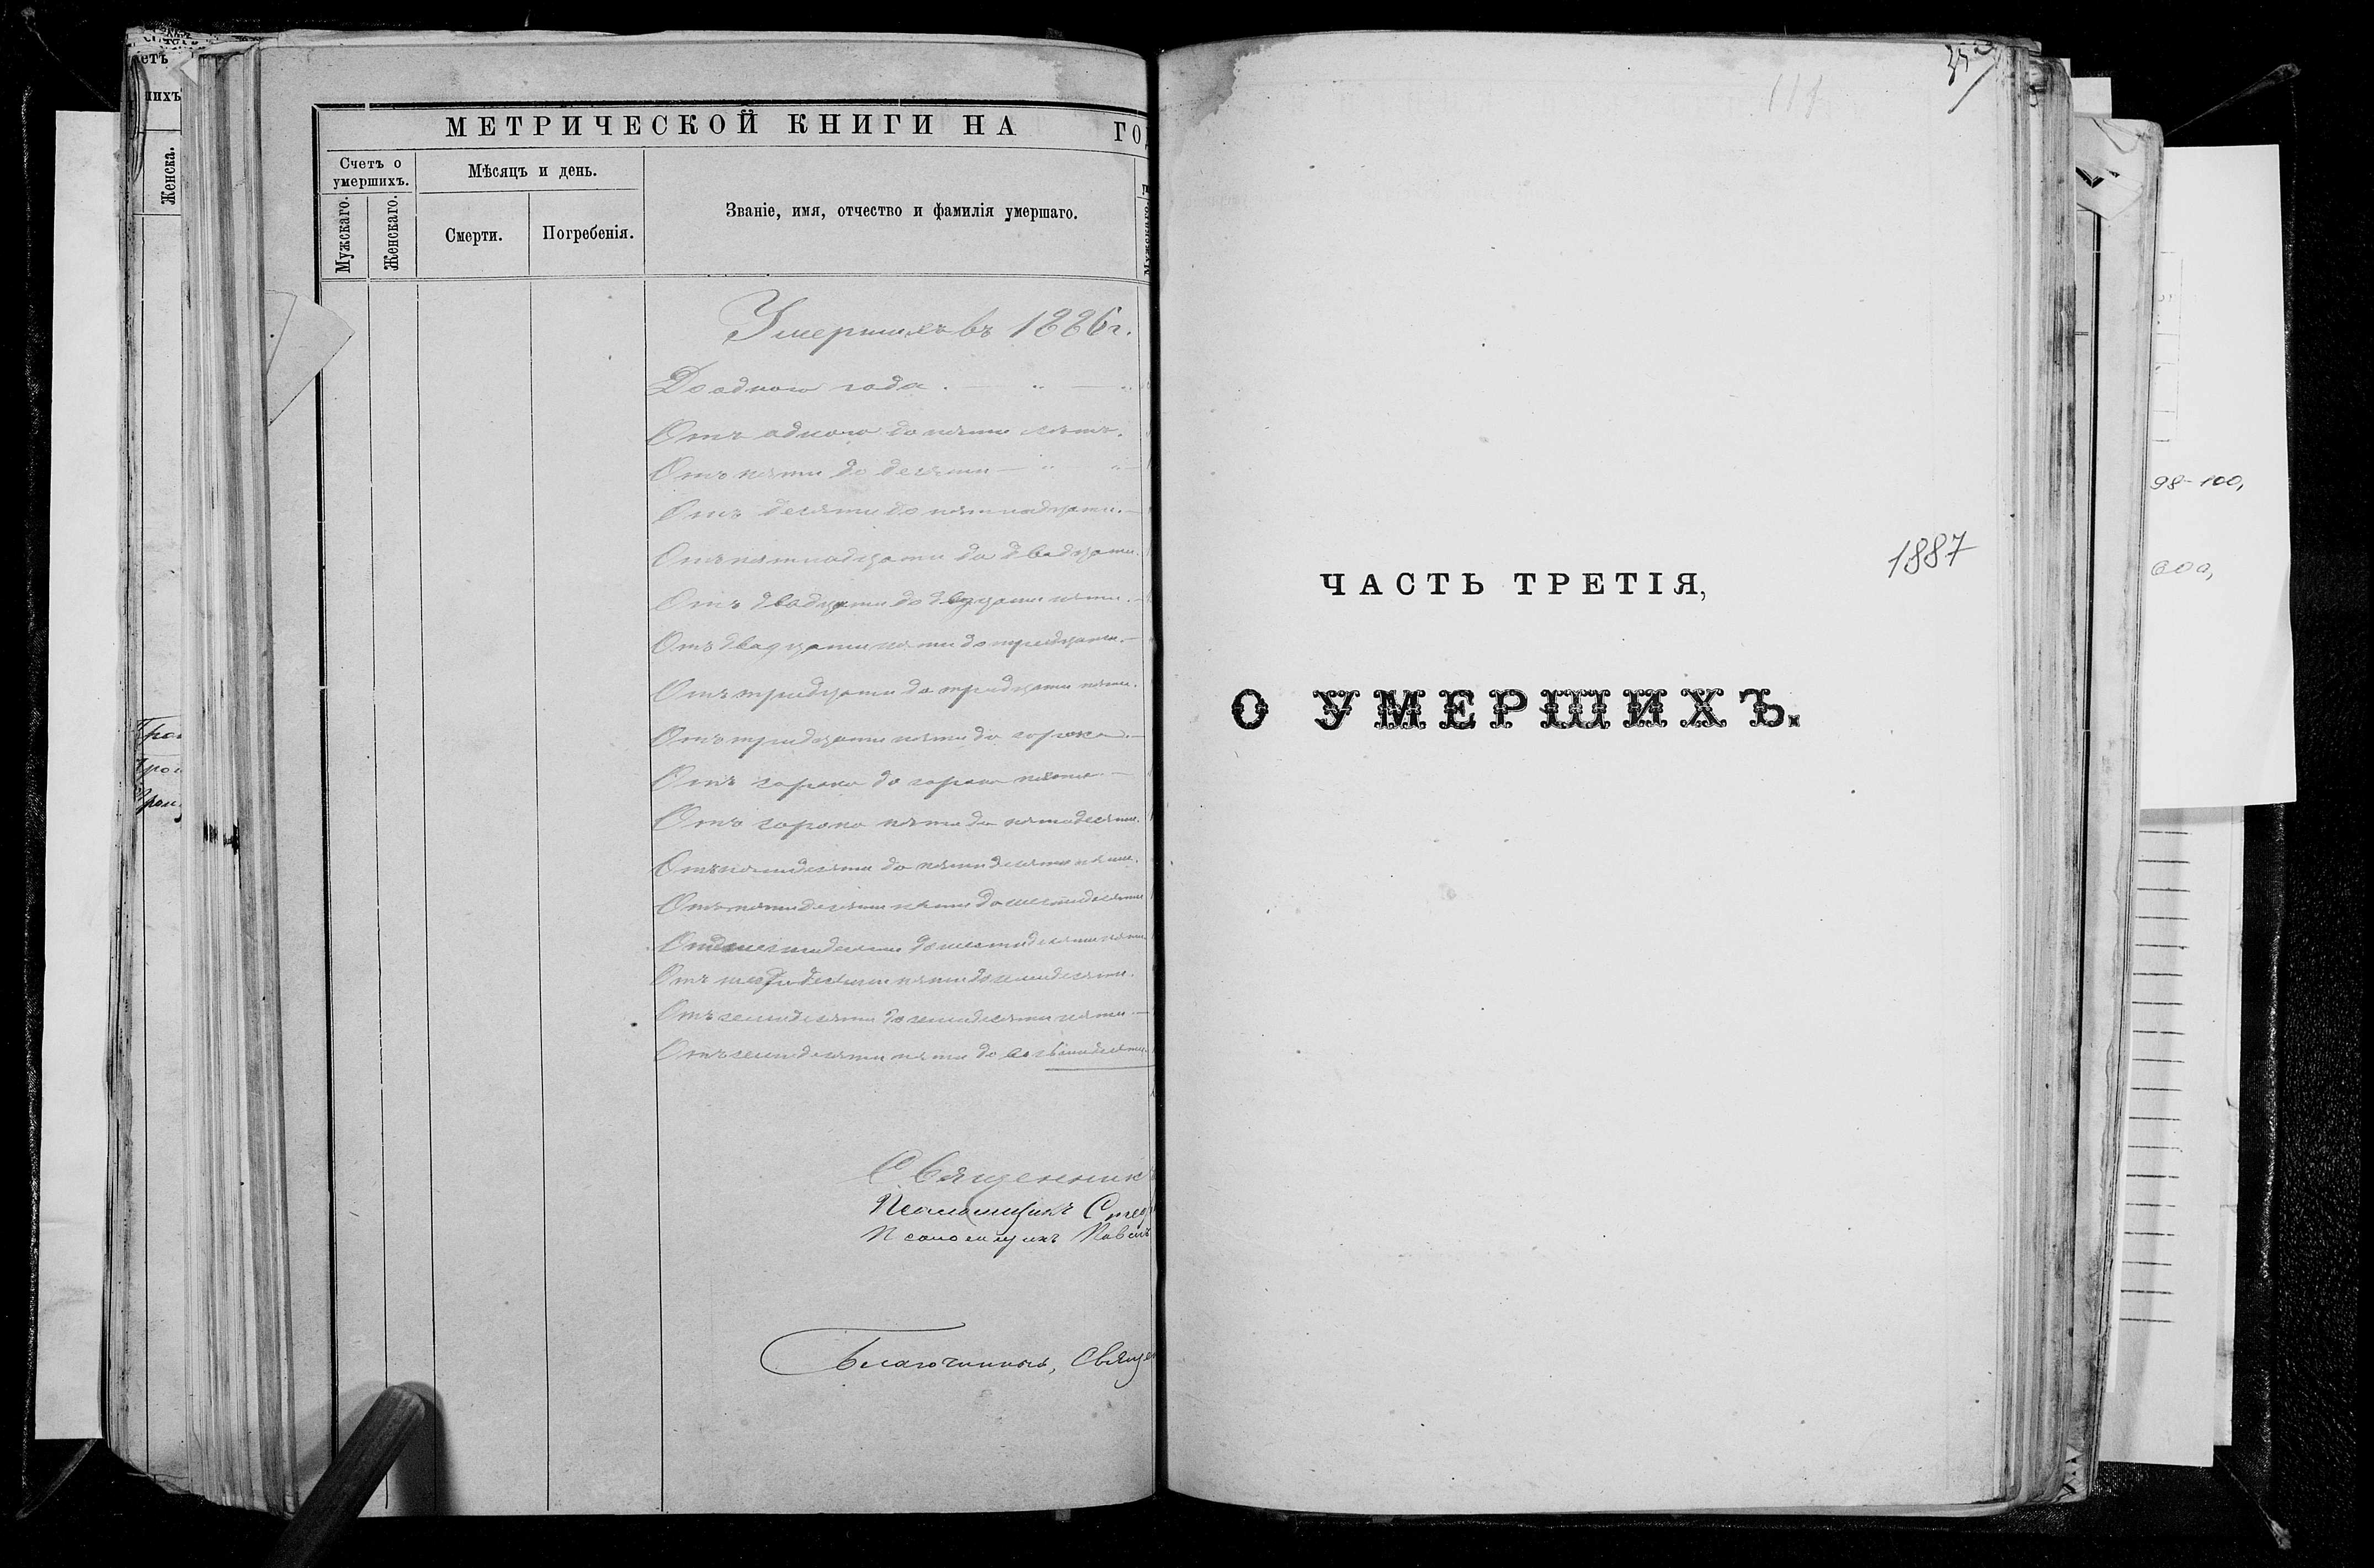 МЕТРИЧЕСКОЙ КНИГИ НА ГО
Счетъ о умершихъ.
Мужскаго.
Женскаго.
Мѣсяцъ и день.
Смерти.
Погребенія.
Званіе, имя, отчество и фамилія умершаго.
Умершихъ въ 1886 г.
До одного года . — „ — „
Отъ одного до пяти лѣтъ.
Отъ пяти до десяти — „ „
Отъ десяти до пятнадцати. —
Отъ пятнадцати до двадцати.
Отъ двадцати до двадцати пяти. —
Отъ двадцати пяти до тридцати. —
Отъ тридцати до тридцати пяти.
Отъ тридцати пяти до сорока. —
Отъ сорока до сорока пяти —
Отъ сорока пяти до пятидесяти.
Отъ пятидесяти до пятидесяти пяти.
Отъ пятидесяти пяти до шестидесяти
Отъ шестидесяти до шестидесяти пяти.
Отъ шестидесяти пяти до семидесяти.
Отъ семидесяти до семидесяти пяти —
Отъ семидесяти пяти до восьмидесяти.
Священник
Псаломщикъ
Псаломщикъ Павелъ
Благочинный, Свяще
117
1887
ЧАСТЬ ТРЕТІЯ,
О УМЕРШИХЪ.
Женска.
98-100,
600,